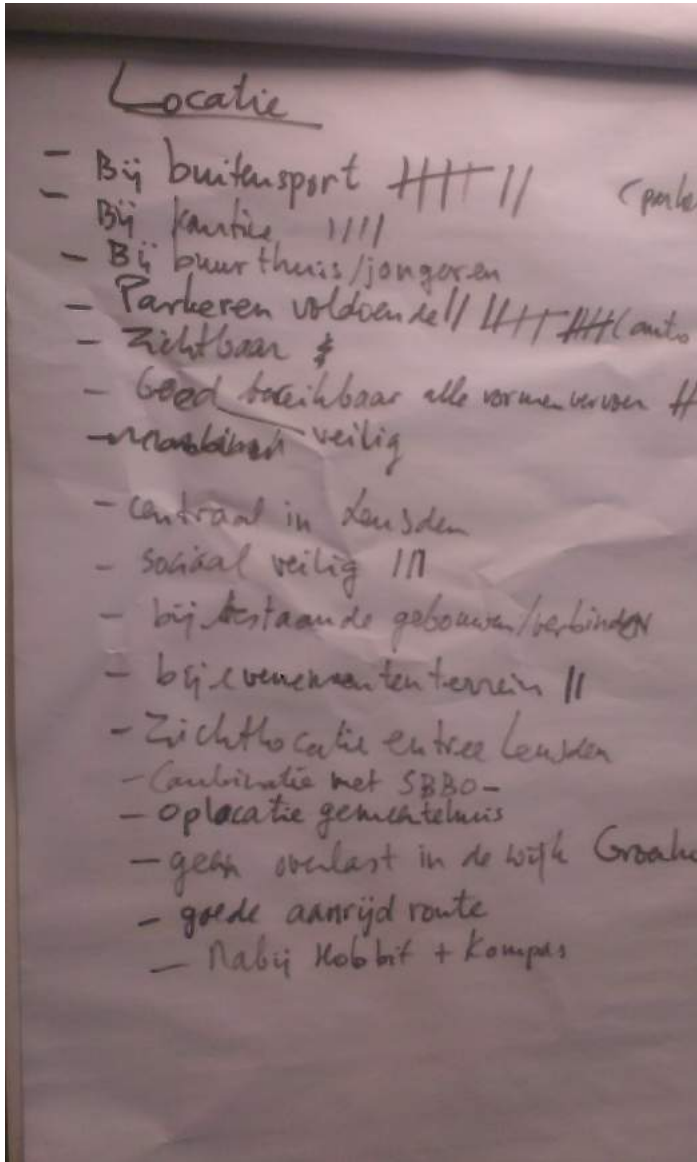 Locatie
- Bij buitensport |||| || (parke
- Bij kantine ||||
- Bij buurthuis/jongeren
- Parkeren voldoende || |||| |||| (auto
- Zichtbaar
- Goed bereikbaar alle vormen vervoer
- veilig
- centraal in Leusden
- sociaal veilig |||
- bij bestaande gebouwen/verbinden
- bij evenemententerrein ||
- Zichtlocatie entree Leusden
- Combinatie met SBBO -
- op locatie gemeentehuis
- geen overlast in de wijk
- goede aanrijd route
- Nabij Hobbit + Kompas